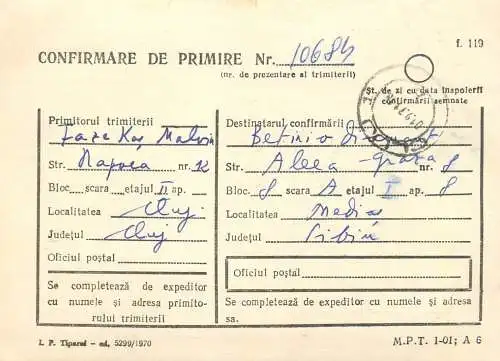 f. 119
CONFIRMARE DE PRIMIRE Nr. 10684
(nr. de prezentare al trimiterii)
Șt. de zi cu data înapoierii
confirmării semnate
Primitorul trimiterii
Str. Napoca nr. 12
Bloc scara etajul II ap.
Localitatea Cluj
Județul Cluj
Oficiul poștal
Se completează de expeditor
cu numele și adresa primito-
rului trimiterii
Destinatarul confirmării
Str. Aleea nr. 8
Bloc. 8 scara A etajul I ap. 8
Localitatea Mediaș
Județul Sibiu
Oficiul poștal
Se completează de expeditor cu numele și adresa
sa.
I. P. Tiparul — cd. 5299/1970
M.P.T. 1-01; A 6